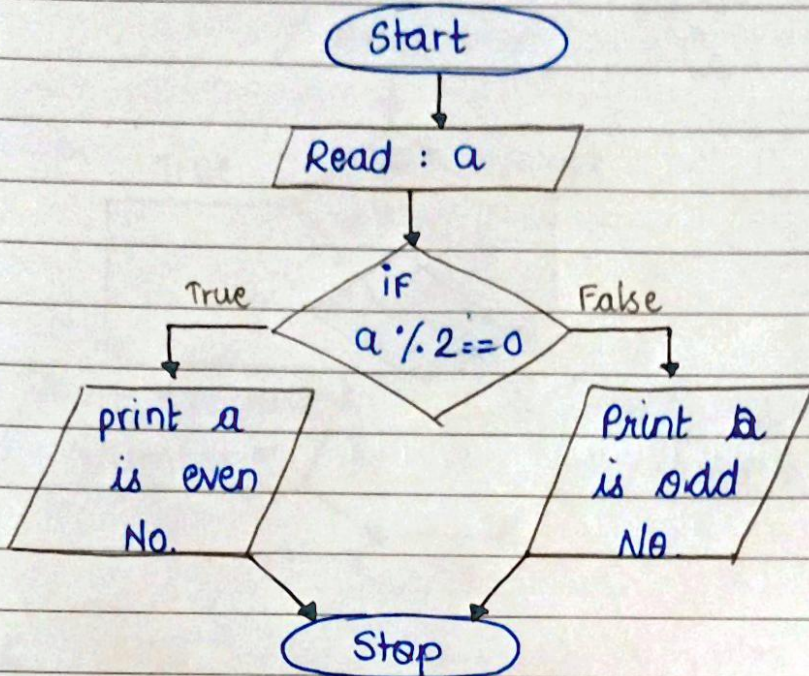 Start
Read : a
if
a % 2==0
True
False
print a
is even
No.
Print a
is odd
No.
Stop